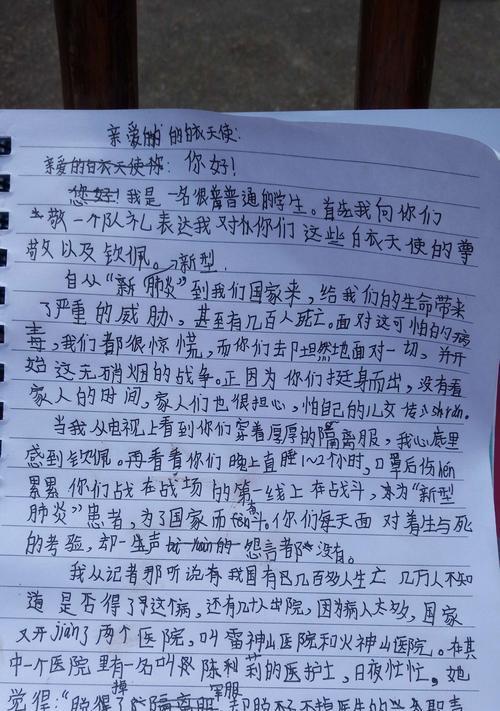 亲爱的 的白衣天使:
亲爱的白衣天使你: 你好!
您好!我是一名很普普通的学生。首先我向你们
敬一个队礼表达我对你们这些白衣天使的尊
敬以及钦佩。 新型
自从“新 肺炎”到我们国家来,给我们的生命带来
了严重的威胁,甚至有几百人死亡。面对这可怕的病
毒,我们都很惊慌,而你们却坦然地面对一切,并开
始这无硝烟的战争。正因为你们挺身而出,没有看
家人的时间,家人们也很担心,怕自己的儿女
当我从电视上看到你们穿着厚厚的隔离服,我心底里
感到钦佩。再看看你们晚上直睡1~2个小时,口罩后伤hén
累累 你们战在战场的第一线上在战斗,来为“新型
肺炎”患者,为了国家而 斗。你们每天面对着生与死
的考验,却一生声 怨言都 没有。
我从记者那听说有我国有已几百多人生亡 几万人不知
道是否得了 这个病,还有几十人出院,因为病人太多,国家
又开jiàn了两个医院,叫雷神山医院和火神山医院。在其
中一个医院里有一名叫 陈利莉的医护士,日夜忙忙,她
掉 军服
觉得:“脱得了防隔离服 却脱不掉医生的